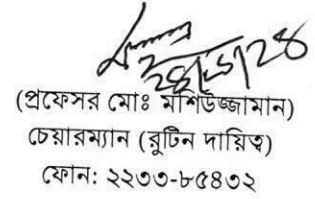 (প্রফেসর মোঃ মশিউজ্জামান)
চেয়ারম্যান (রুটিন দায়িত্ব)
ফোন: ২২৩৩-৮৫৪৩২